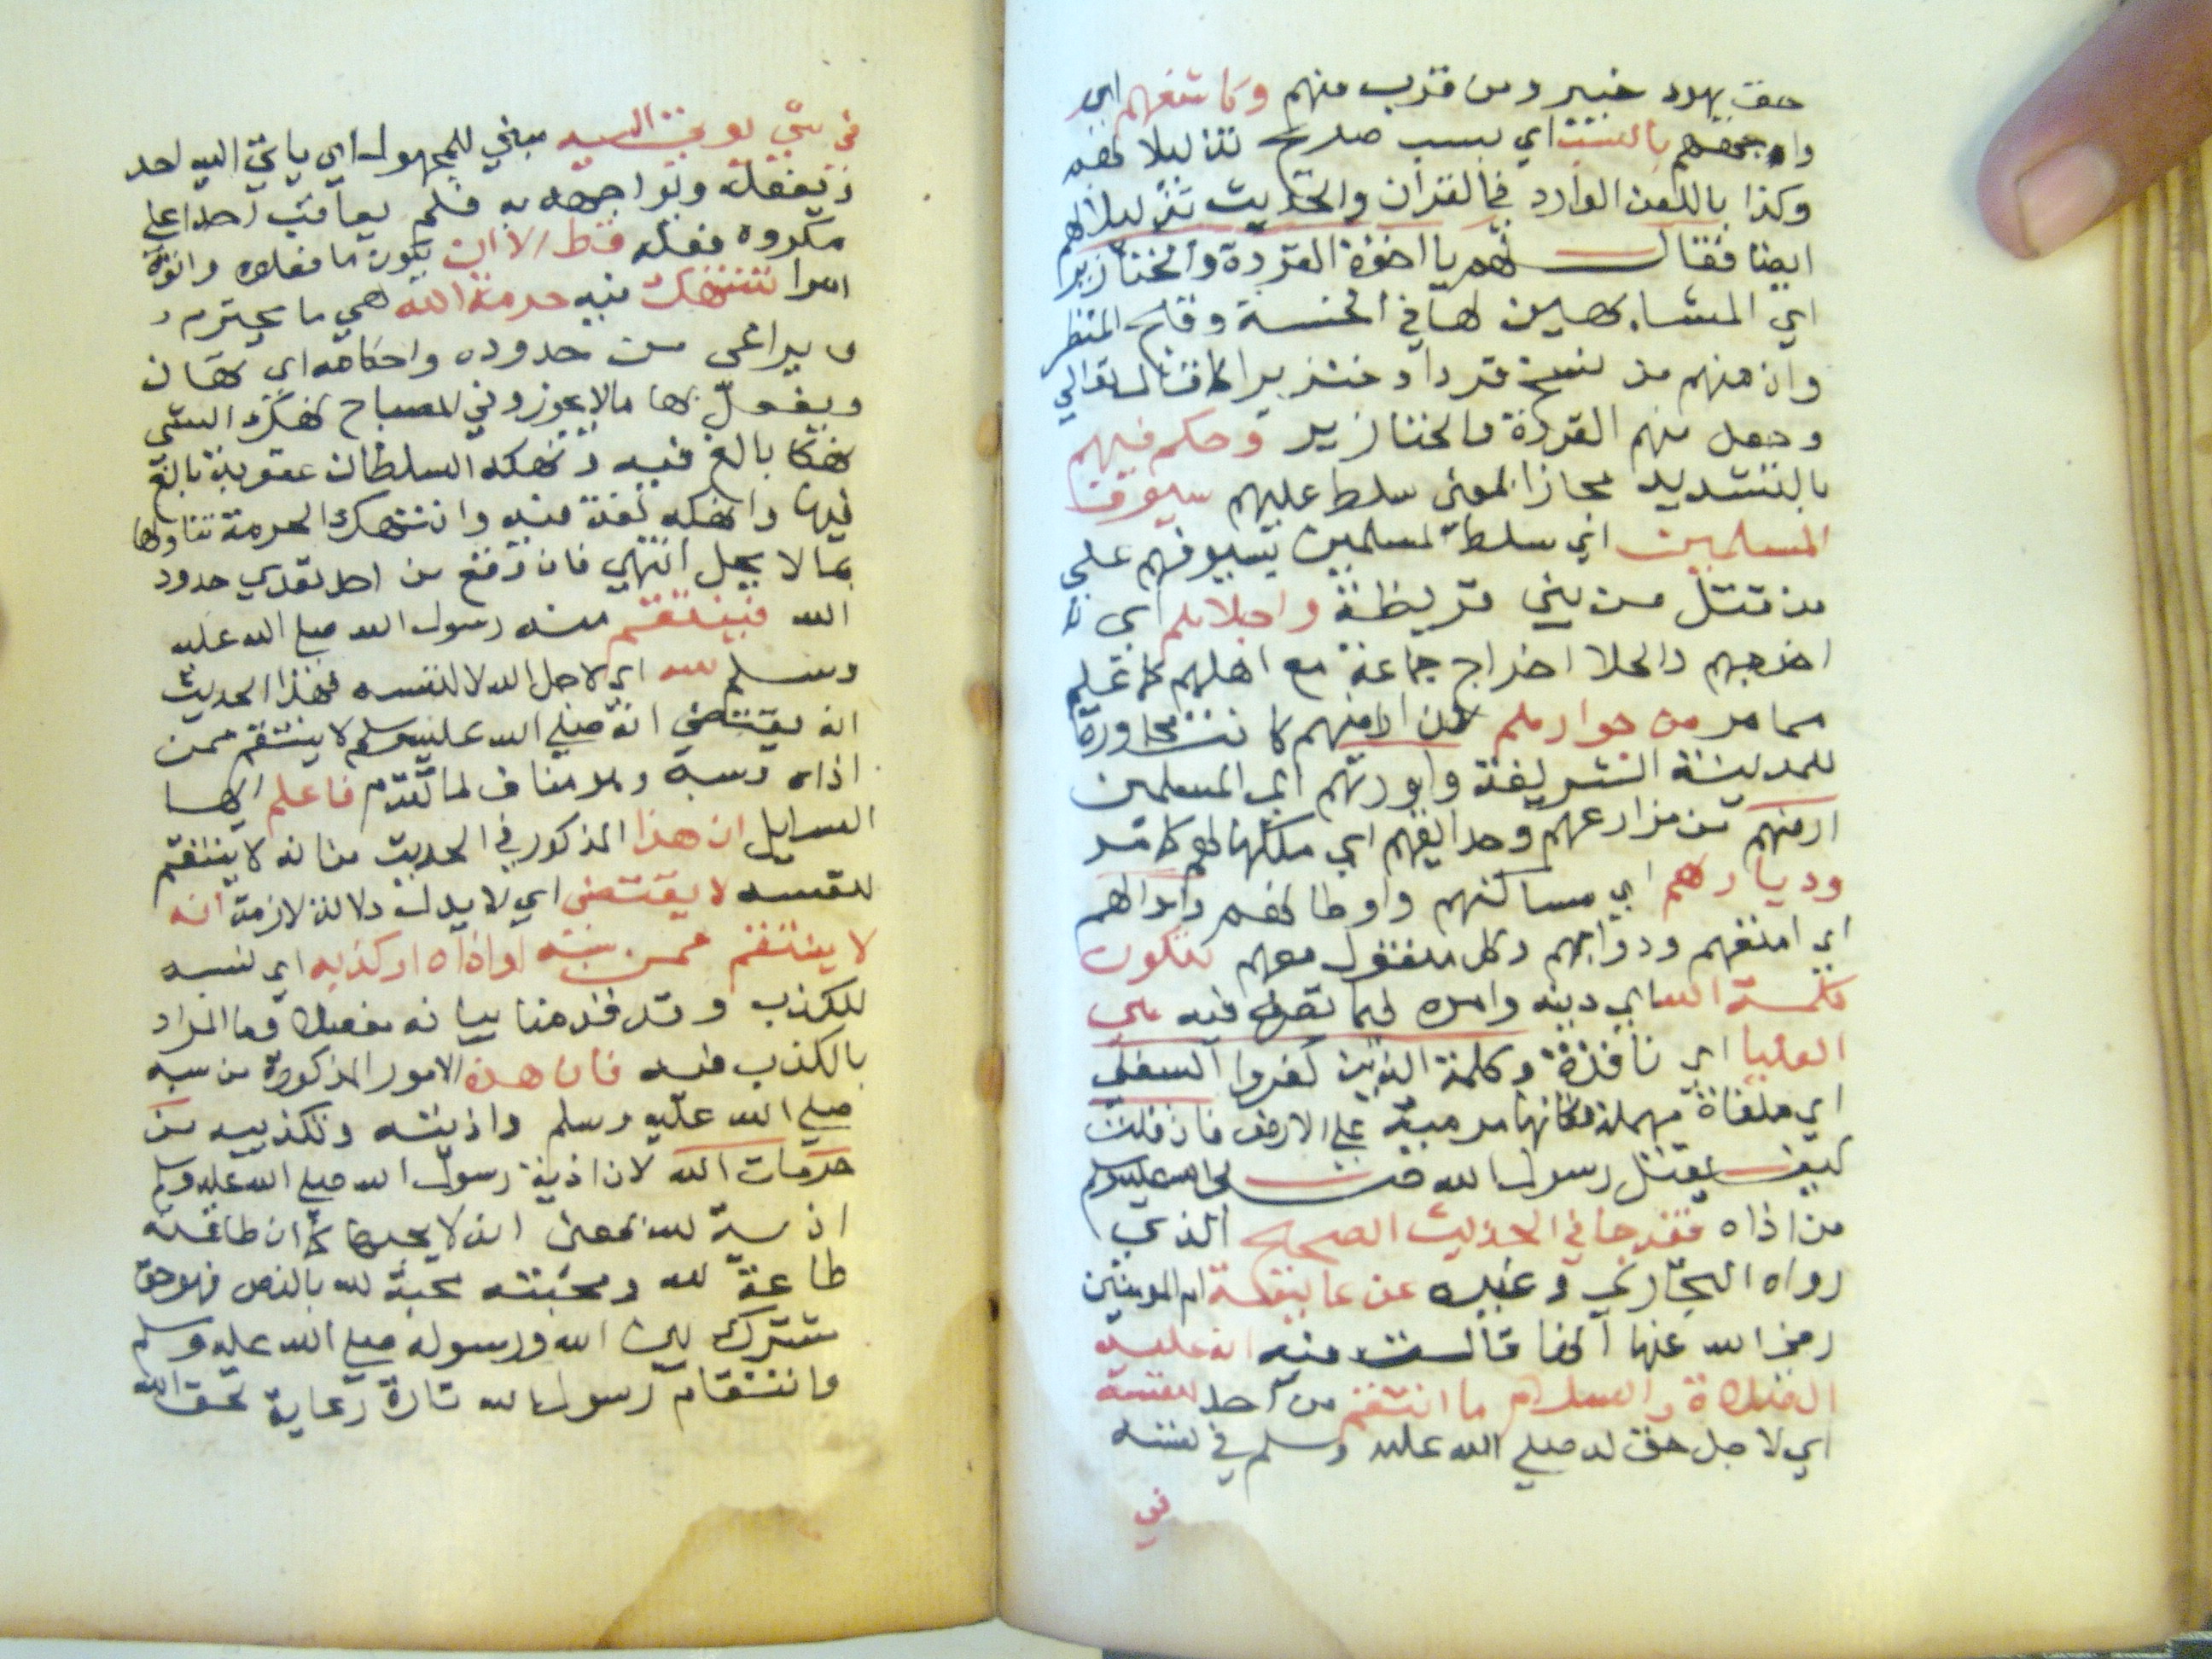 حق يهود خيبر ومن قرب منهم وكاشفهم اي
واجههم بالسب اي بسب صريح تذليلا لهم
وكذا باللعن الوارد في القران والحديث تذليلا لهم
ايضا فقال لهم يا اخوة القردة والخنازير
اي المشابهين لها في الخسة وقبح المنظر
وان منهم من نسخ قردا وخنزيرا كما قال تعالي
وجعل منهم القردة والخنازير وحكم فيهم
بالتشديد مجازا بمعنى سلط عليهم سيوف
المسلمين اي سلط المسلمين بسيوفهم علي
من قتل من بني قريظة واجلاهم اي
اخرجهم والجلا اخراج جماعة مع اهلهم كما علم
مما مر من جوارهم لان ارضهم كانت مجاورة
للمدينة الشريفة واورثهم اي المسلمين
ارضهم من مزارعهم وحدايقهم اي ملكها لهم كما مر
وديارهم اي مساكنهم واوطانهم واموالهم
اي امتعهم ودوابهم وكل منقول معهم لتكون
كلمة الله اي دينه وامره فيما تصرف فيه هي
العليا اي نافذة وكلمة الذين كفروا السفلي
اي ملقاة مهملة فكانها مرمية علي الارض فان قلت
كيف يقتل رسول الله صلى الله عليه وسلم
من اذاه فقد جا في الحديث الصحيح الذي
رواه البخاري وغيره عن عايشة ام المومنين
رضي الله عنها انها قالت فيه انه عليه
الصلاة والسلام ما انتقم من احد لنفسه
اي لاجل حق له صلي الله عليه وسلم في نفسه
في
في شي يوتي اليه مبني للمجهول اي ياتي اليه احد
ويفعله ويواجهه به فلم يعاقب احدا علي
مكروه فعله قط الا ان يكون ما فعلوه واتوه
امرا تنتهك فيه حرمة الله هي ما يحترم و
يراعى من حدوده واحكامه اي تهان
ويفعل بها ما لا يجوز وفي المصباح نهك الشي
نهكا بالغ فيه ونهكه السلطان عقوبة بالغ
فيها وانهكه لغة فيه وانتهك الحرمة تناولها
بما لا يحل انتهي فان وقع من احد تعدي حدود
الله فينتقم منه رسول الله صلي الله عليه
وسلم لله اي لاجل الله لا لنفسه فهذا الحديث
انه يقتضي انه صلي الله عليه وسلم لا ينتقم ممن
اذاه وسبه وهو مناف لما تقدم فاعلم ايها
السايل ان هذا المذكور في الحديث من انه لا ينتقم
لنفسه لا يقتضي اي لا يدل دلالة لازمة انه
لا ينتقم ممن سبه او اذاه او كذبه اي نسبه
للكذب وقد قدمنا بيانه مفصلا وما المراد
بالكذب فيه فان هذه الامور المذكورة من سبه
صلي الله عليه وسلم واذيته وتكذيبه من
حرمات الله لان اذية رسول الله صلي الله عليه وسلم
اذية لله بمعنى انه لا يحبها كما ان طاعته
طاعة لله ومحبته محبة لله بالنص فهو حق
مشترك بين الله ورسوله صلي الله عليه وسلم
وانتقام رسول الله تارة رعاية لحق الله